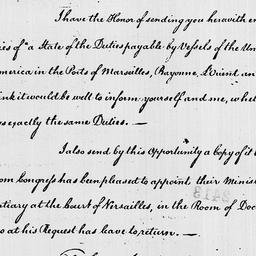 I have the Honor of sending you herewith en
ies of "a State of the Duties payable by Vessels of the Un
merica in the Ports of Marseilles, Bayonne, L'Orient, an
ink it would be well to inform yourself and me, whet
ys exactly the same Duties. —
I also send by this Opportunity a Copy of it t
om Congress has been pleased to appoint their Minist
tiary at the Court of Versailles, in the Room of Doc
o at his Request has leave to return. —